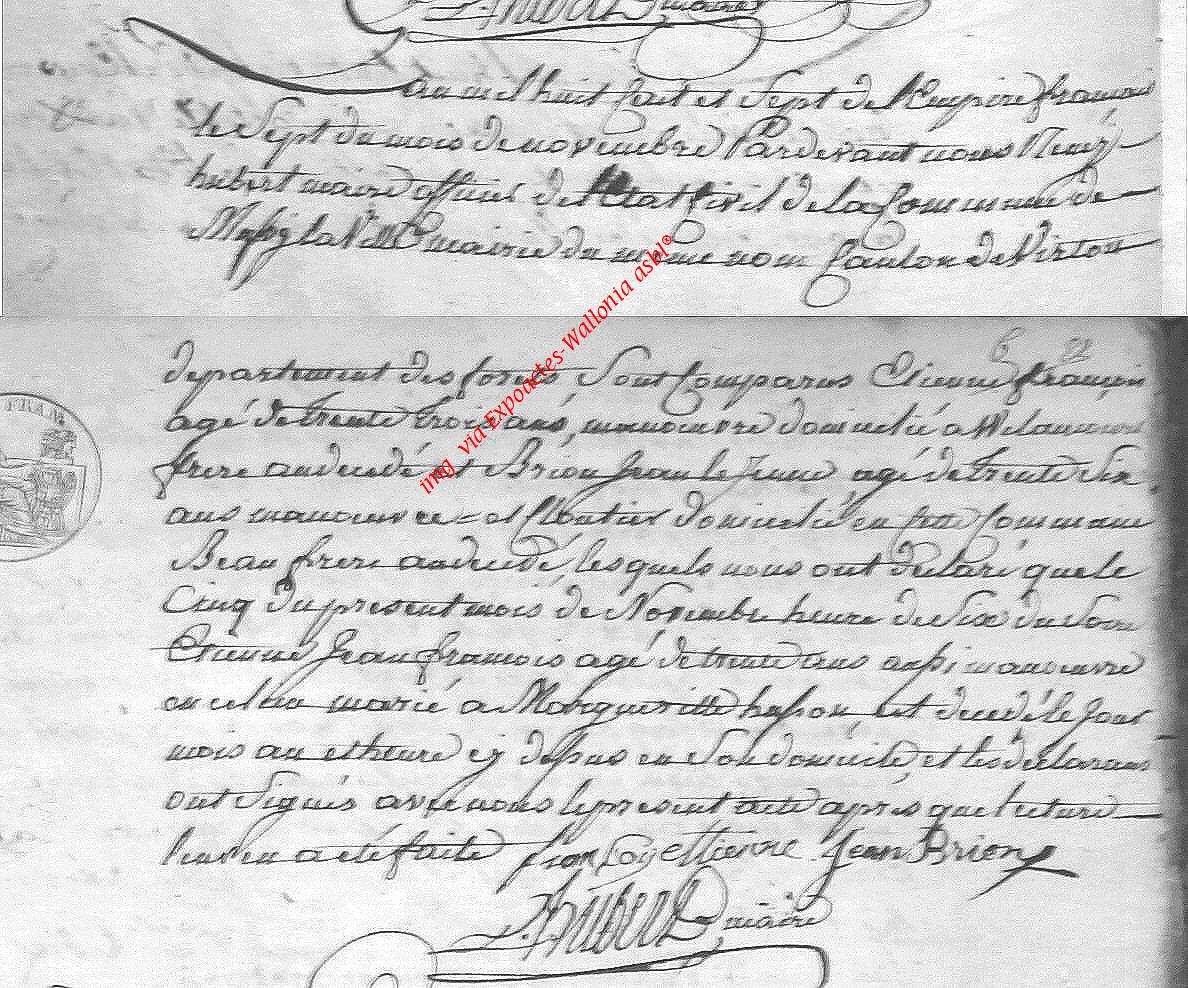 Hubert maire
an mil huit Cent et Sept de l'Empire français
le Sept du mois de novembre Pardevant nous
hubert maire officier de l'Etat Civil de la Commune de
Mussy la Ville mairie du même nom Canton de Virton
departement des forets, Sont Comparus Etienne françois
agé de trente trois ans, manoeuvre domicilié a
frere au decedé et Brion Jean le Jeune, agé de trente Six
ans manoeuvre et Cloutier domicilié en cette Commune
Beau frere au decedé, lesquels nous ont declaré que le
Cinq du present mois de Novembre heure de Six du Soir
Etienne Jean françois agé de trente ans aussi manoeuvre
en ce lieu marié a Margueritte husson, est decedé le Jour
mois an et heure cy dessus en Son domicile, et les declarans
ont Signés avec nous le present acte apres que lecture
leur en a eté faite françois ettienne Jean Brion
Hubert maire
FRAN
img via Expoactes-Wallonia asbl®